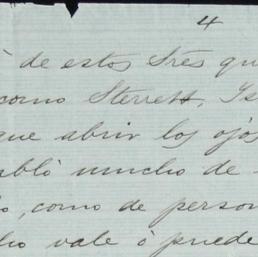 4
à de estos tres qu
como Sterrett, Is
que abrir los ojos
abló mucho de
o, como de person
ho vale ò puede